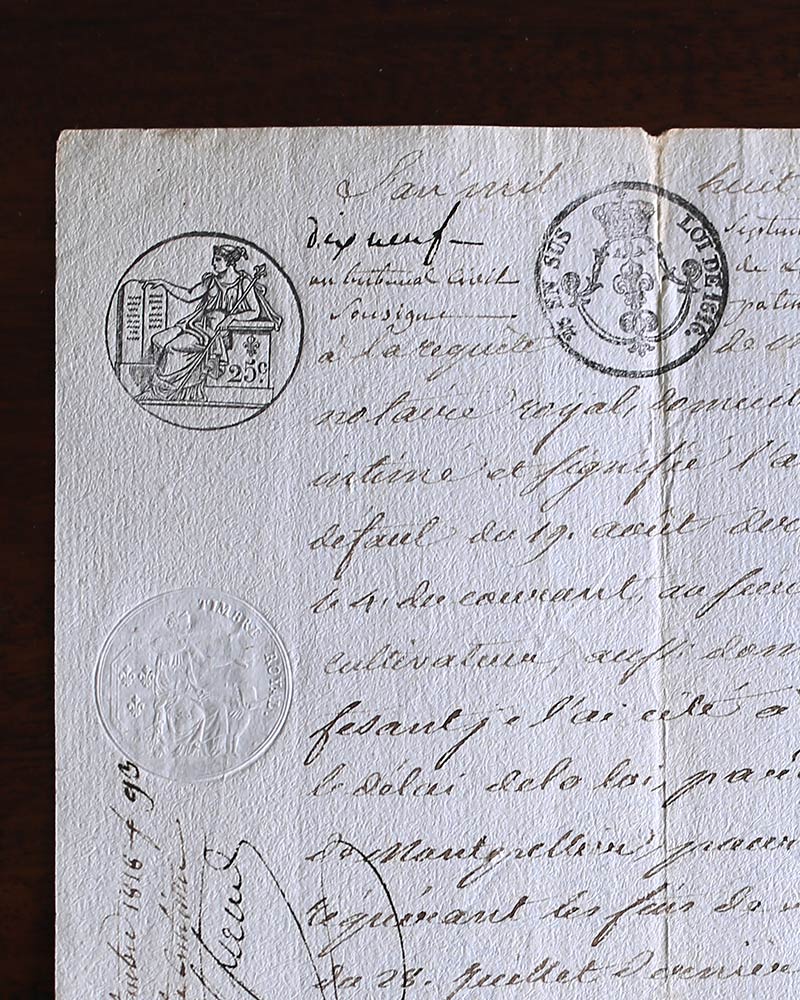 L'an mil huit
dix neuf
EN SUS LOI DE 1816
au tribunal Civil de
Soussigné
à la requête de
notaire royal, domicil
25c
intimé et signifié l'a
defaut du 19. août der
le 4. du courant, au sieur
TIMBRE ROYAL
cultivateur, aussi dom
fesant je l'ai cité à
le délai de la loi, par
de Montpellier, pour
requérant les fins de
du 28. juillet dernier
1816 f 93